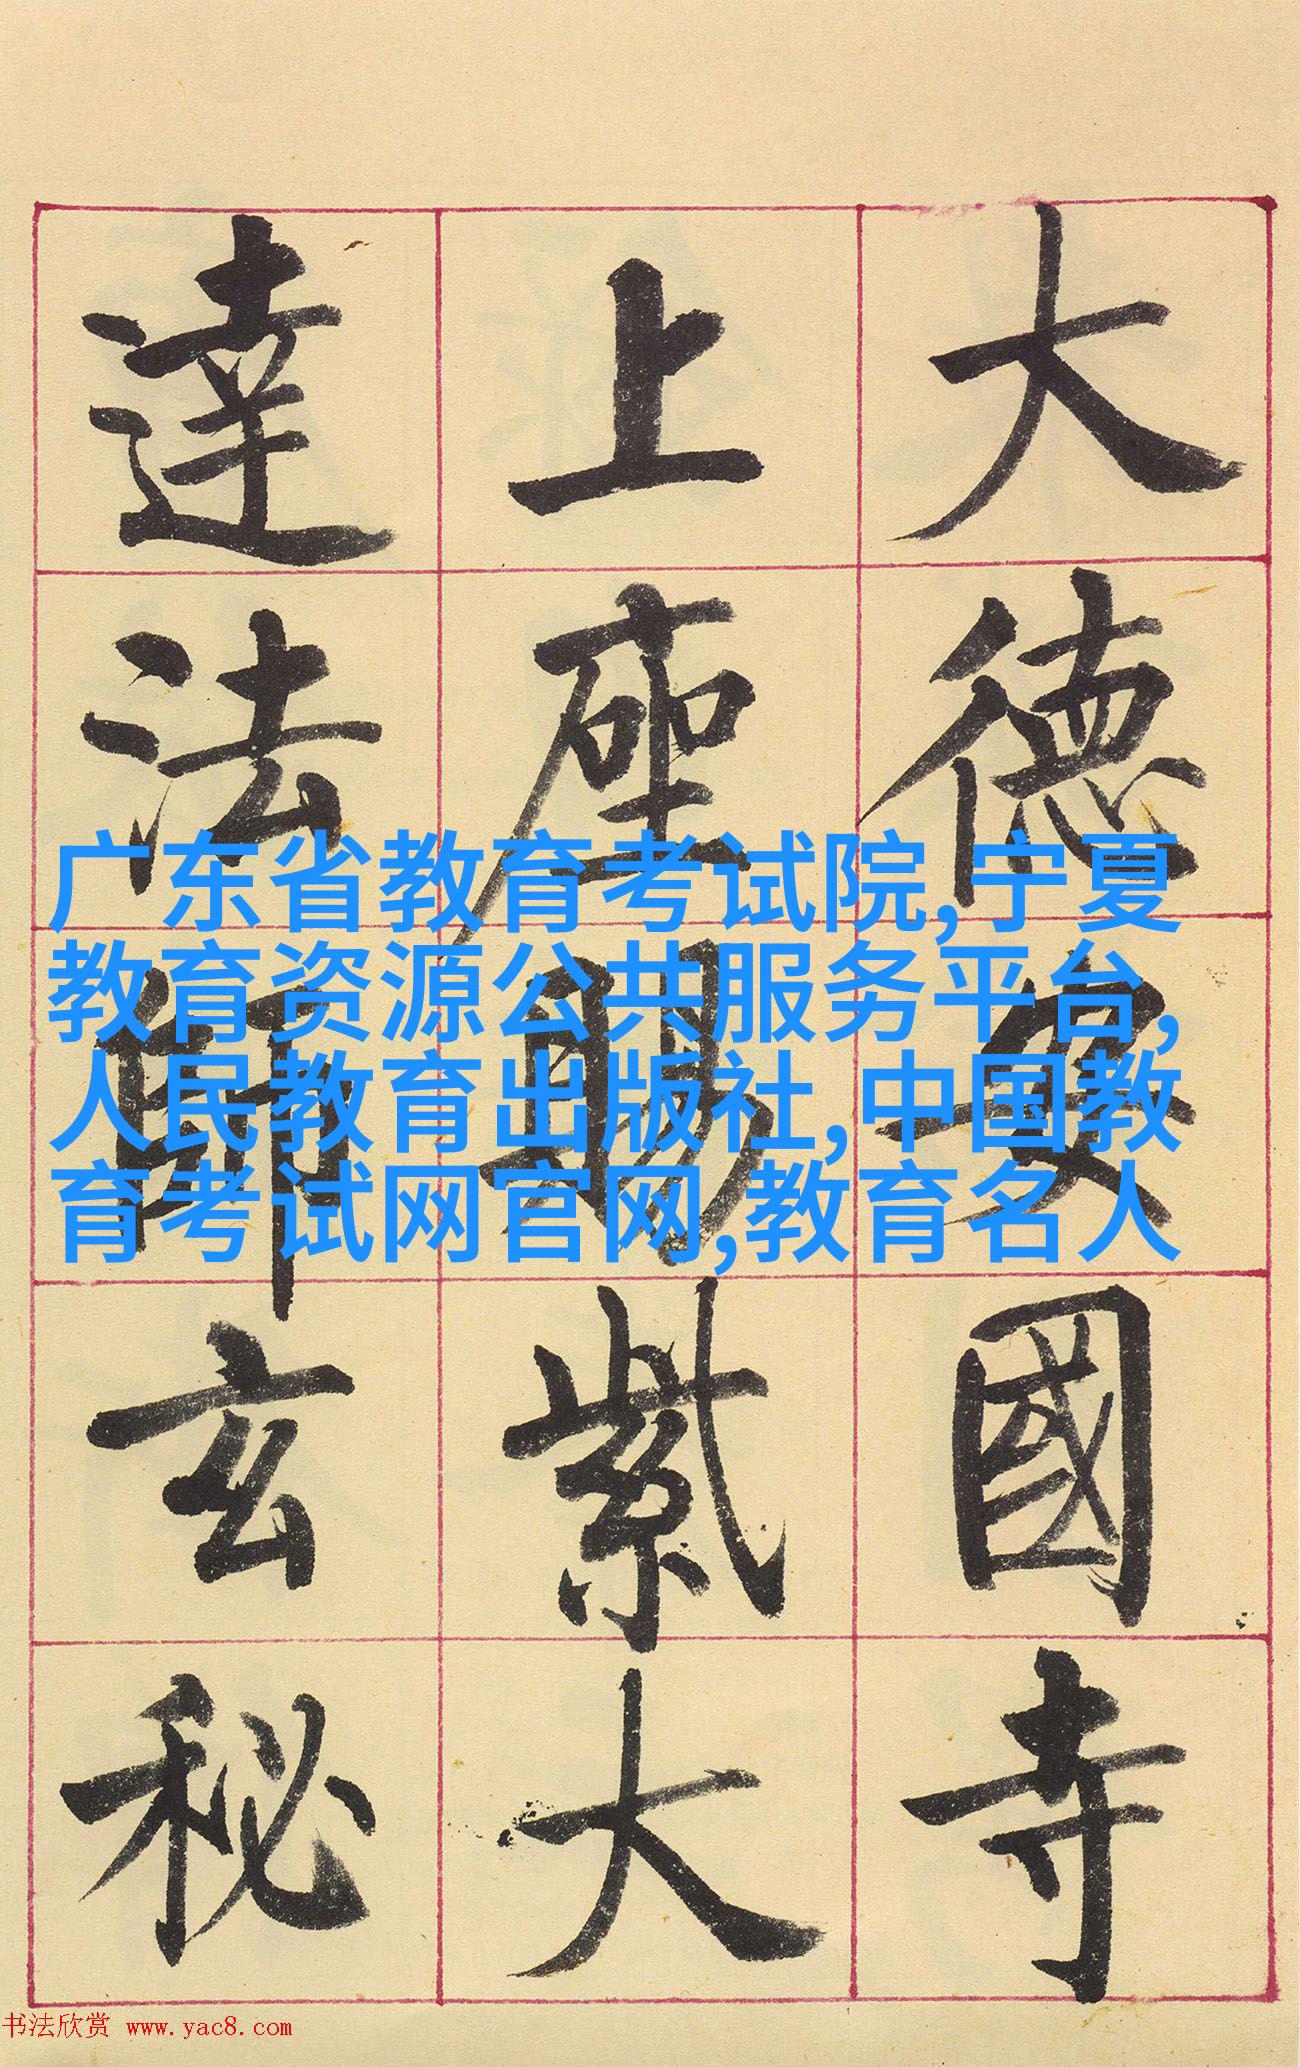 大德安國寺
上座賜紫大
達法師玄秘
广东省教育考试院,宁夏
教育资源公共服务平台,
人民教育出版社,中国教
育考试网官网,教育名人
书法欣赏 www.yac8.com